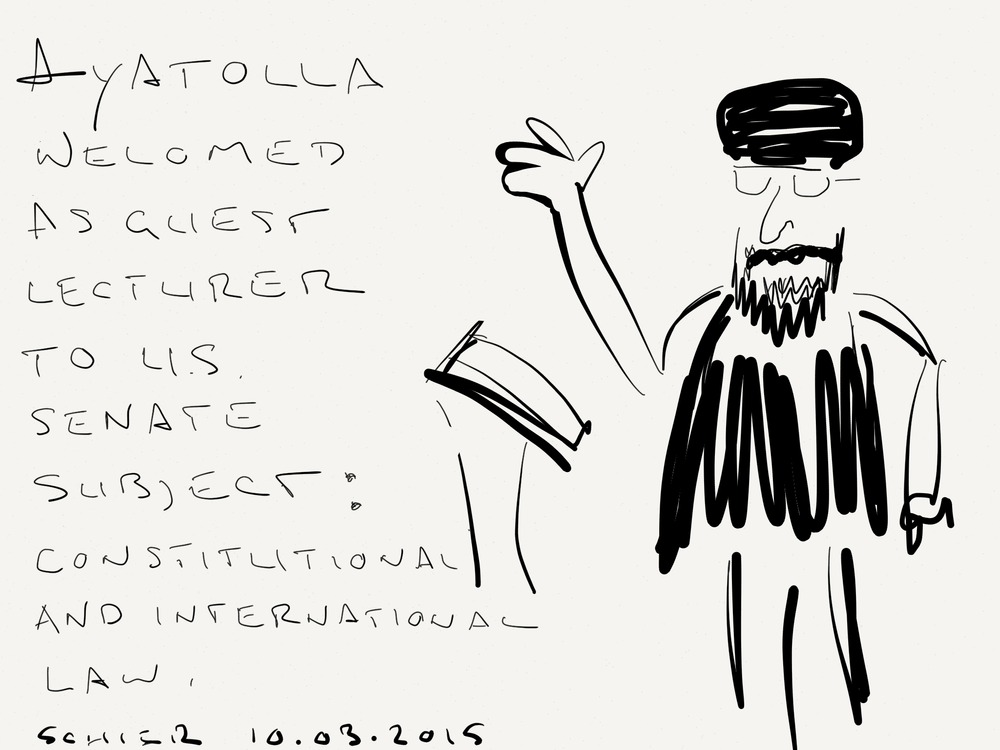 AYATOLLA
WELOMED
AS GUEST
LECTURER
TO U.S.
SENATE
SUBJECT:
CONSTITUTIONAL
AND INTERNATIONAL
LAW.
10.03.2015